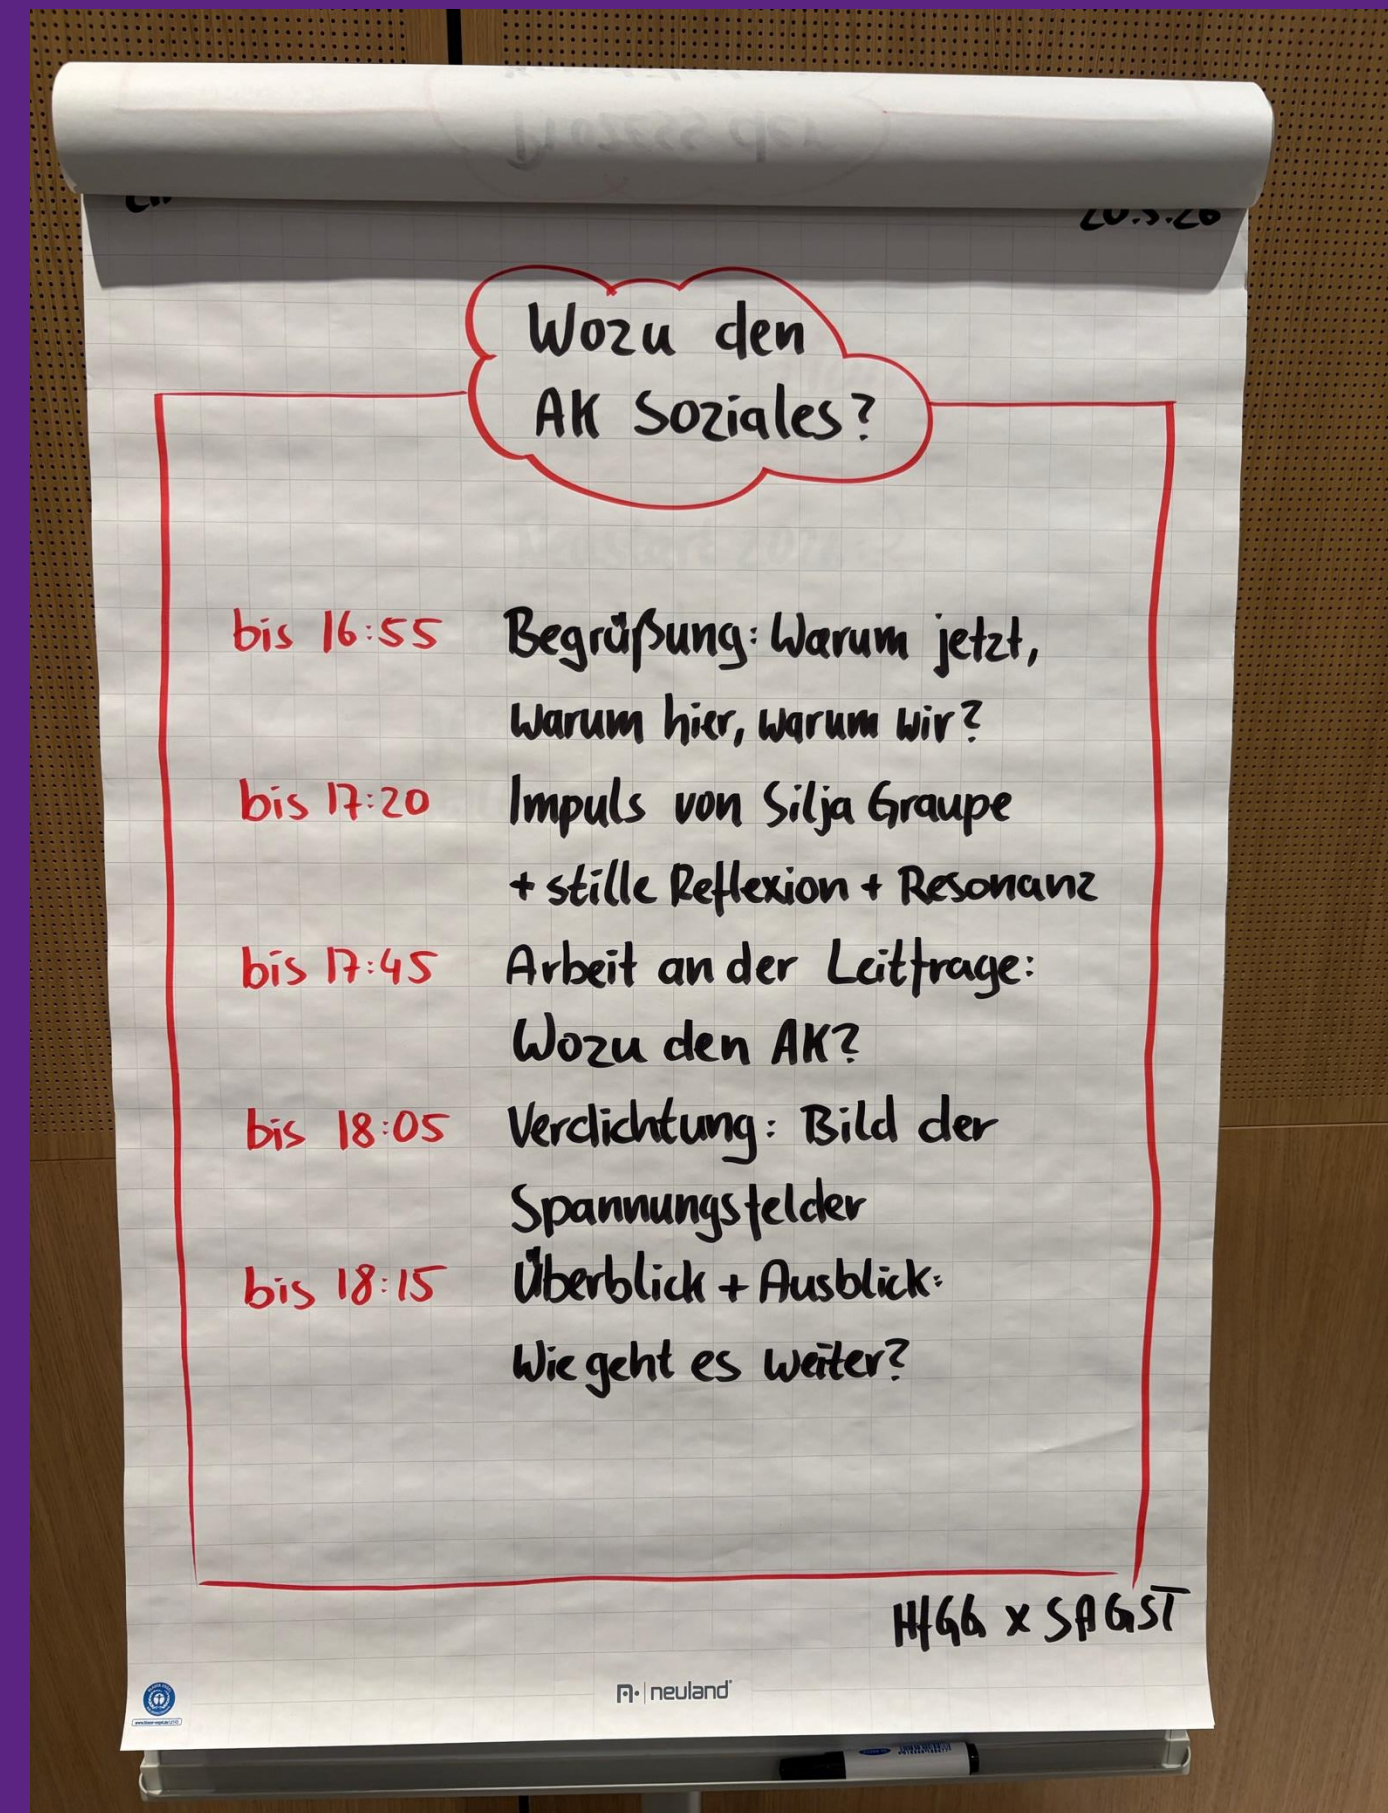 20.5.26
Wozu den
AK Soziales?
bis 16:55 Begrüßung: Warum jetzt,
warum hier, warum wir?
bis 17:20 Impuls von Silja Graupe
+ stille Reflexion + Resonanz
bis 17:45 Arbeit an der Leitfrage:
Wozu den AK?
bis 18:05 Verdichtung: Bild der
Spannungsfelder
bis 18:15 Überblick + Ausblick:
Wie geht es weiter?
HfGG x SAGST
neuland